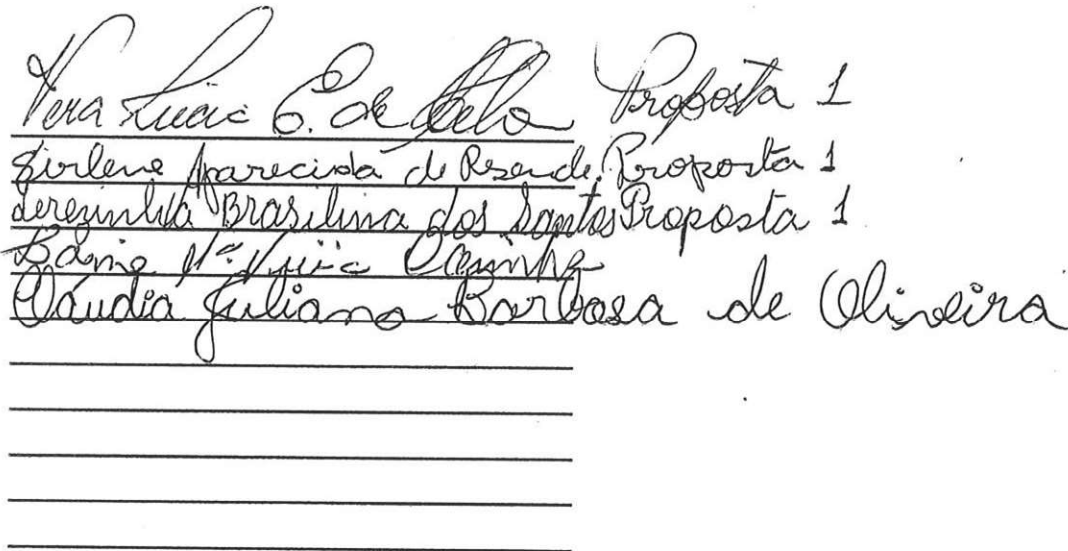 Vera Lucia C. de Melo Proposta 1
Girlene Aparecida de Resende Proposta 1
Terezinha Brasilina dos Santos Proposta 1
Mª
Cláudia Juliana Barbosa de Oliveira